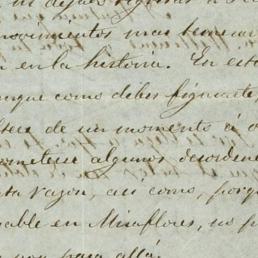 movimientos mas
n en la historia. En esta
unque como debes figurarte
de un momento á o
cometer algunos desordene
ta razon, asi como, porq
able en Miraflores, no p
para allá.